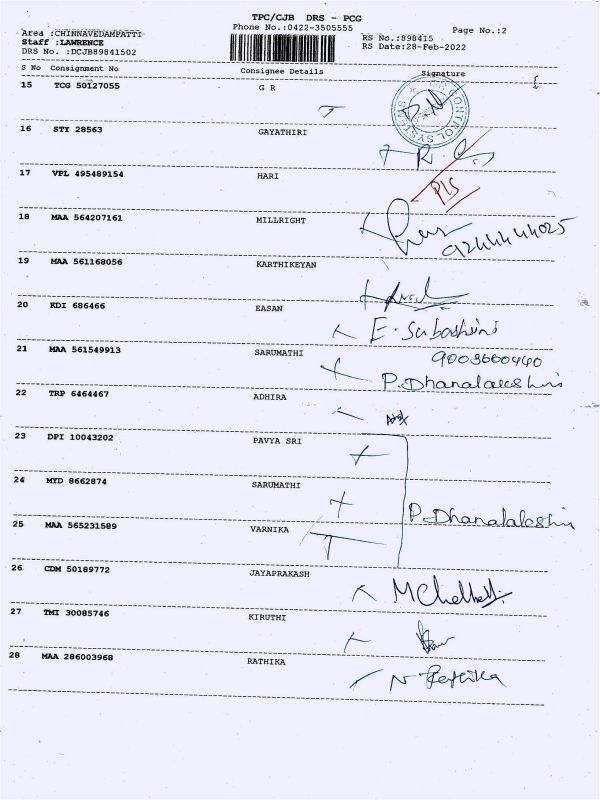 TPC/CJB DRS - PCG
Phone No.:0422-3505555 Page No.:2
Area :CHINNAVEDAMPATTI
Staff :LAWRENCE RS No.:898415
DRS No. :DCJB89841502 RS Date:28-Feb-2022
S No Consignment No Consignee Details Signature
15 TCG 50127055 G R
CONTROL SYSTEMS
16 STY 28563 GAYATHIRI
17 VPL 495489154 HARI
PLS
18 MAA 564207161 MILLRIGHT
9244444025
19 MAA 561168056 KARTHIKEYAN
20 KDI 686466 EASAN
E. Subashini
21 MAA 561549913 SARUMATHI
9003660440
P. Dhanalakshmi
22 TRP 6464467 ADHIRA
23 DPI 10043202 PAVYA SRI
24 MYD 8662874 SARUMATHI
P. Dhanalakshmi
25 MAA 565231589 VARNIKA
26 CDM 50189772 JAYAPRAKASH
27 TMI 30085746 KIRUTHI
28 MAA 286003968 RATHIKA